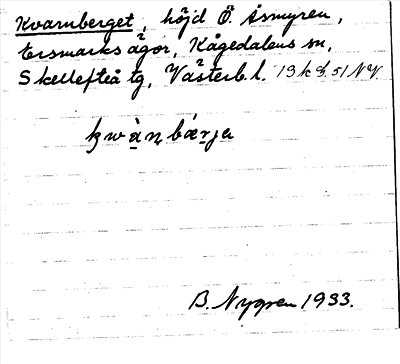 Kvarnberget, höjd Ö. Åsmyren,
Ersmarks ägor, Kågedalens sn,
Skellefteå tg, Västerb. l. 19 k 8. 51 NV.
kwànbærjə
B. Nygren 1933.